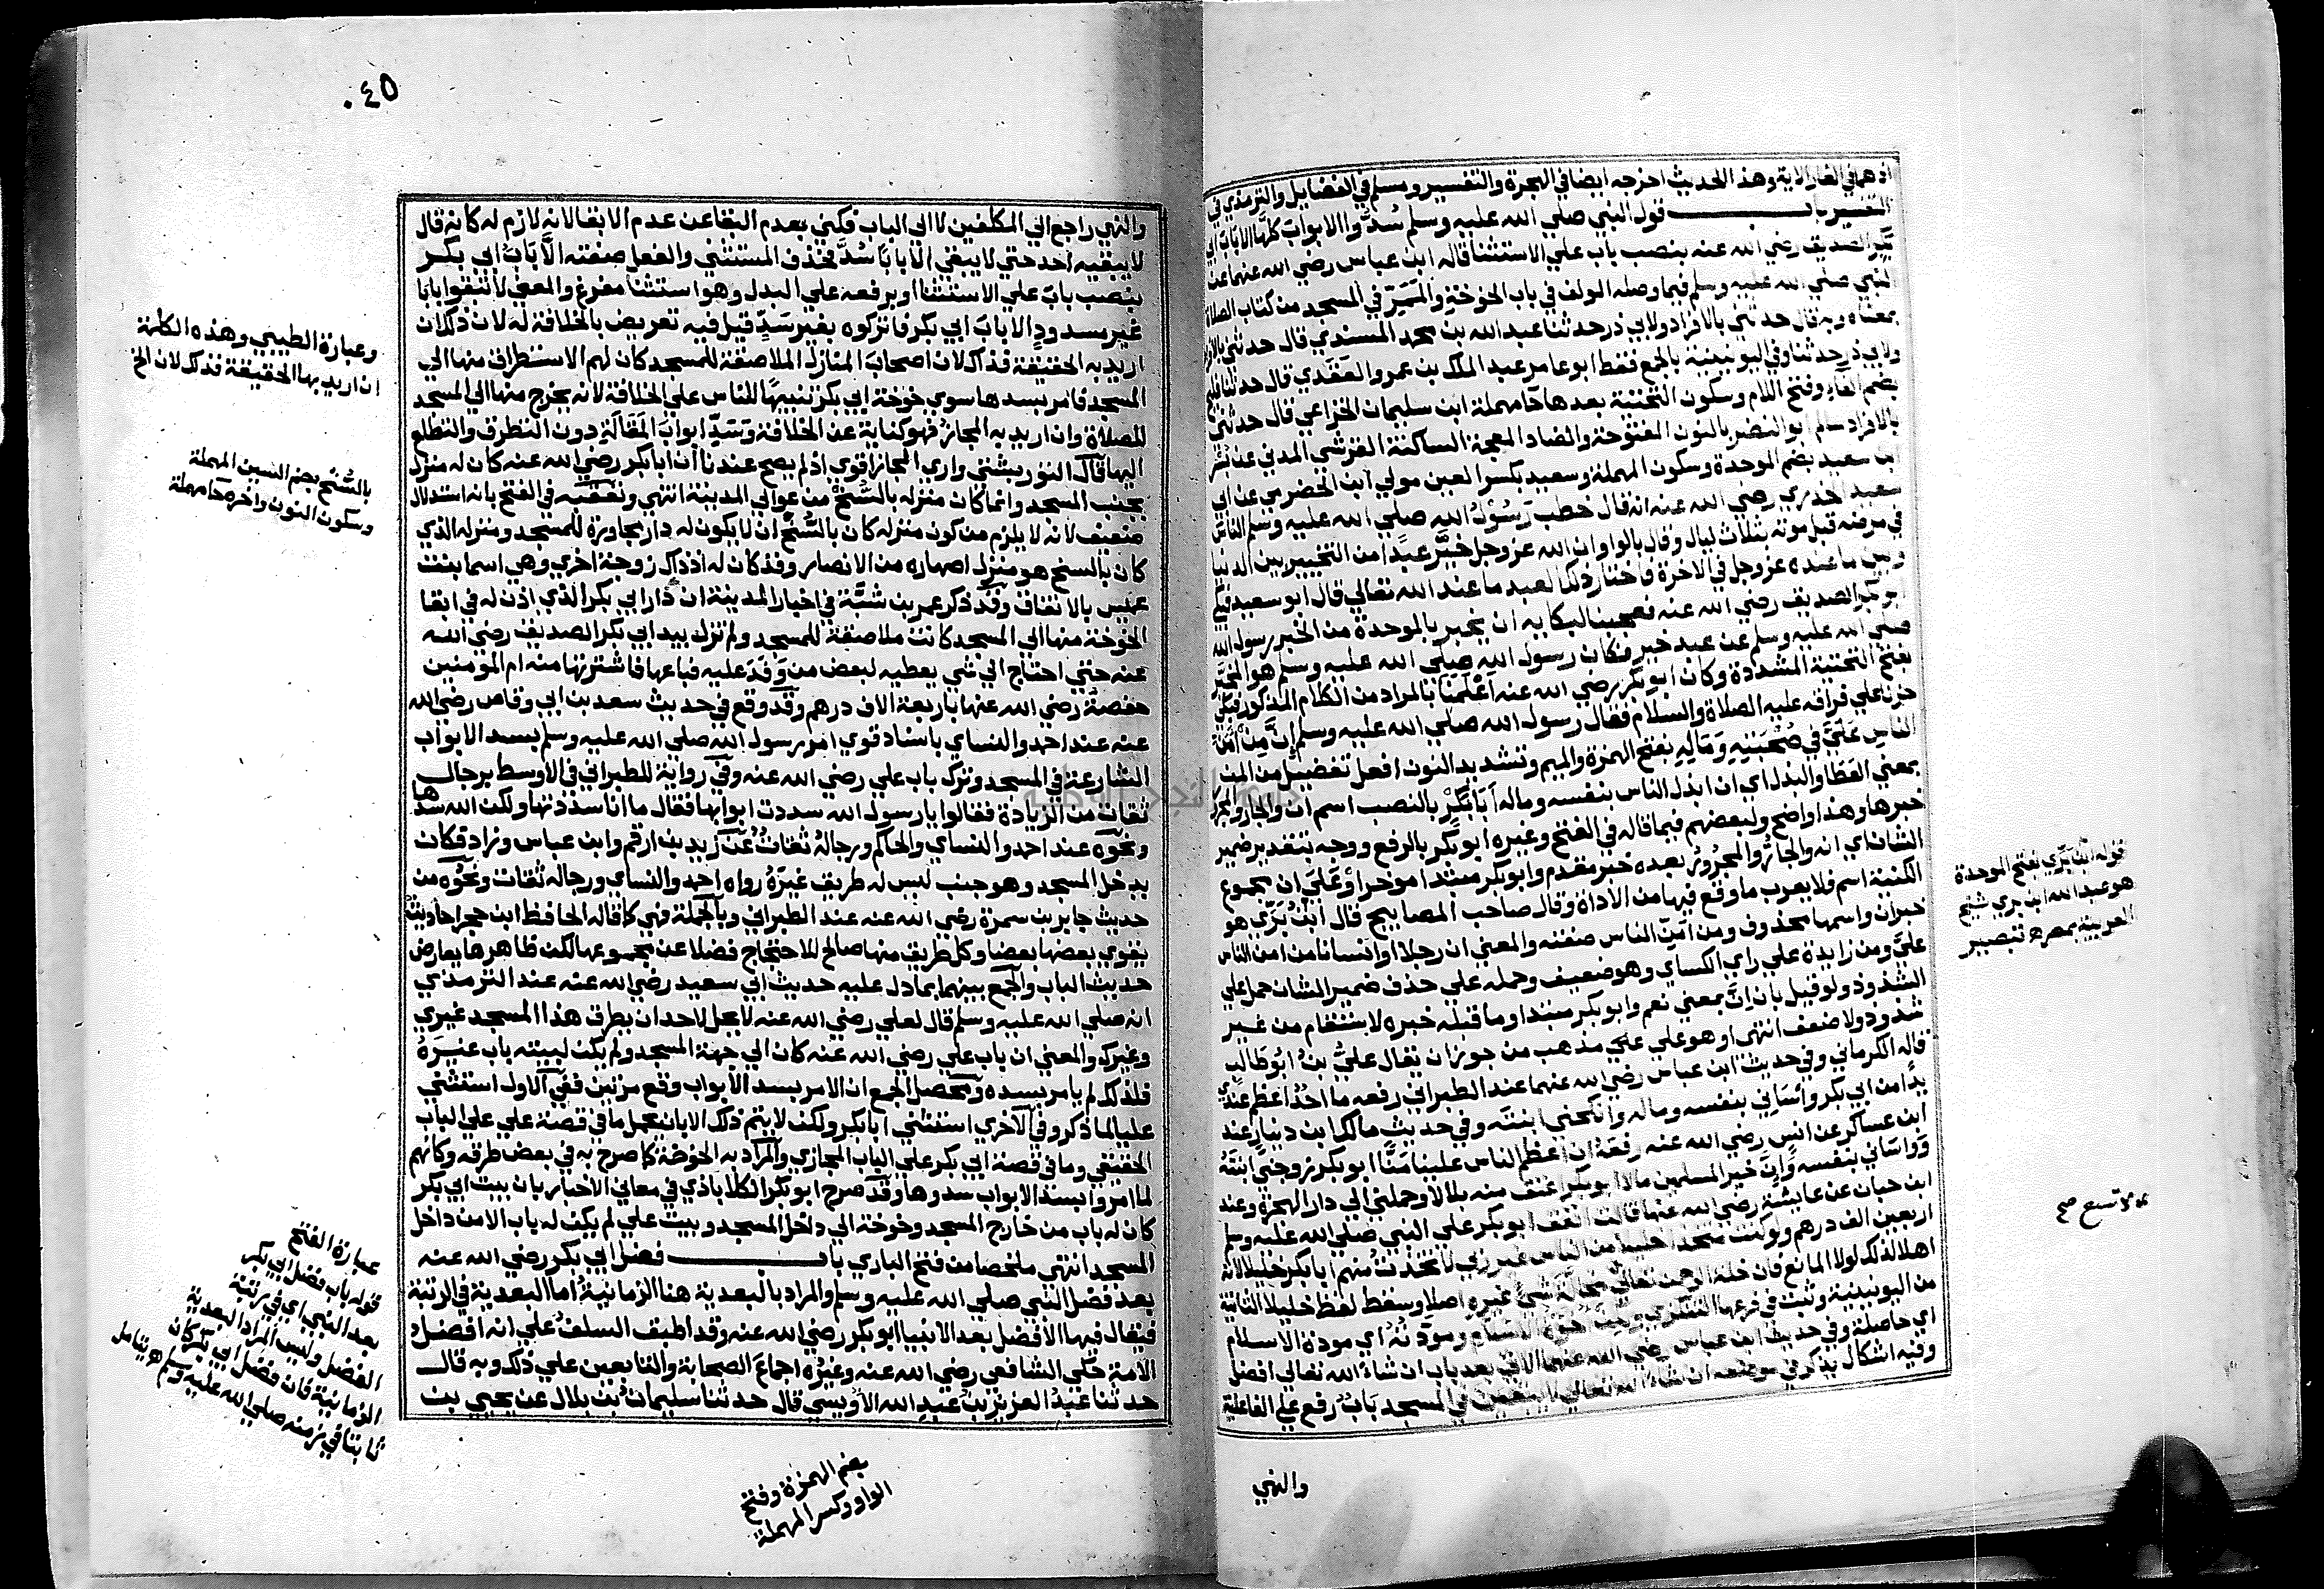 اذهما في الغار الاية وهذا الحديث اخرجه ايضا في الهجرة والتفسير ومسلم في الفضايل والترمذي في
التفسير باب قول النبي صلي الله عليه وسلم سُدُّوا الابواب كلها الا باب ابي
بكر الصديق رضي الله عنه بنصب باب علي الاستثنا قاله ابن عباس رضي الله عنهما عن
النبي صلي الله عليه وسلم فيما وصله المولف في باب الخوخة والممر في المسجد من كتاب الصلاة
بمعناه وبه قال حدثني بالافراد ولابي ذر حدثنا عبد الله بن محمد المسندي قال حدثني بالافراد
ولابي ذر حدثنا وفي اليونينية بالجمع فقط ابو عامر عبد الملك بن عمرو العقدي قال حدثنا فليح
بضم الفاء وفتح اللام وسكون التحتية بعدها حا مهملة ابن سليمان الخزاعي قال حدثني
بالافراد سالم ابو النضر بالنون المفتوحة والضاد المعجمة الساكنة القرشي المدني عن بسر
ابن سعيد بضم الموحدة وسكون المهملة وسعيد بكسر العين مولي ابن الحضرمي عن ابي
سعيد الخدري رضي الله عنه انه قال خطب رسول الله صلي الله عليه وسلم الناس
في مرضه قبل موته بثلاث ليال وقال بالواو ان الله عز وجل خيّر عبدا من التخيير بين الدنيا
وبين ما عنده عز وجل في الاخرة فاختار ذلك العبد ما عند الله تعالي قال ابو سعيد فبكي
ابو بكر الصديق رضي الله عنه فعجبنا لبكايه ان يخبر بالموحدة من الخبر رسول الله
صلي الله عليه وسلم عن عبد خير فكان رسول الله صلي الله عليه وسلم هو المخيَّر
بفتح التحتية المشددة وكان ابو بكر رضي الله عنه اعلمنا بالمراد من الكلام المذكور فبكي
حزنا علي فراقه عليه الصلاة والسلام فقال رسول الله صلي الله عليه وسلم إنَّ مِنْ أمَنّ
الناس عَلَيّ في صُحْبَتِهِ وَمَالِهِ بفتح الهمزة والميم وتشديد النون افعل تفضيل من المن
بمعني العطا والبذل اي ان ابذل الناس بنفسه وماله أبا بَكْرٍ بالنصب اسم ان والجار والمجرور
خبرها وهذا واضح ولبعضهم فيما قاله في الفتح وغيره ابو بكر بالرفع ووجه بتقدير ضمير
الشان اي انه والجار والمجرور بعده خبر مقدم وابو بكر مبتدا موخر او علي ان مجموع
الكنية اسم فلا يعرب ما وقع فيها من الاداة وقال صاحب المصابيح قال ابن بَرّي هو
خبران واسمها محذوف ومن امنّ الناس صفته والمعني ان رجلا او انسانا من امن الناس
عليّ ومن زايدة علي راي الكساي وهو ضعيف وحمله علي حذف ضمير الشان حمل علي
الشذوذ ولو قيل بان إنّ بمعني نعم وابو بكر مبتدا وما قبله خبره لاستقام من غير
شذوذ ولا ضعف انتهي او هو علي مذهب من جوز ان يقال عليُّ بنُ ابُو طالب
قاله الكرماني وفي حديث ابن عباس رضي الله عنهما عند الطبراني رفعه ما احدٌ اعظم عندي
يدا من ابي بكر واساني بنفسه وماله وانكحني ابنته وفي حديث مالك ابن دينار عند
ابن عساكر عن انس رضي الله عنه رفعه ان اعظم الناس علينا منّا ابو بكر زوجني ابنته
وواساني بنفسه وإنَّ خير المسلمين مالا ابو بكر اعتق منه بلالا وحملني الي دار الهجرة وعند
ابن حبان عن عايشة رضي الله عنها قالت انفق ابو بكر علي النبي صلي الله عليه وسلم
اربعين الف درهم ولو كنت متخذا خليلا من الناس غير ربي لاتخذت منهم ابا بكر خليلا لانه
اهلا لذلك لولا المانع فان خلة الرحمن تعالي لا تسع مخالة شي غيره اصلا وسقط لفظ خليلا الثانية
من اليونينية وثبت في فرعها التنكزي ولكن اخوة الاسلام ومودته اي مودة الاسلام
اي حاصلة وفي حديث ابن عباس رضي الله عنهما الاتي بعد باب ان شاء الله تعالي افضل
وفيه اشكال يذكر في موضعه ان شاء الله تعالي لا يبقين في المسجد بابٌ رفع علي الفاعلية
والنهي
قوله ابن بَرّي بفتح الموحدة
هو عبد الله ابن بري شيخ
العربية بمصر اه تبصير
لا تسع صح
٤٥٠
والنهي راجع الي المكلفين لا الي الباب فكني بعدم البقا عن عدم الابقا لانه لازم له كانه قال
لا يبقيه احد حتي لا يبقي الا بابا سُدَّ بحذف المستثني والفعل صفته الَّا بابَ ابي بكر
بنصب باب علي الاستثنا او برفعه علي البدل وهو استثنا مفرغ والمعني لا تبقوا بابا
غير مسدود الا باب ابي بكر فاتركوه بغير سَدٍّ قيل فيه تعريض بالخلافة له لان ذلك ان
اريد به الحقيقة فذاك لان اصحاب المنازل الملاصقة للمسجد كان لهم الاستطراق منها الي
المسجد فامر بسدها سوي خوخة ابي بكر تنبيهًا للناس علي الخلافة لانه يخرج منها الي المسجد
للصلاة وان اريد به المجاز فهو كناية عن الخلافة وسَدّ ابواب المقالة دون التطرق والتطلع
اليها قال التوربشتي واري المجاز اقوي اذ لم يصح عندنا ان ابا بكر رضي الله عنه كان له منزل
بجنب المسجد وانما كان منزله بالسُّنْح من عوالي المدينة انتهي وتعقبه في الفتح بانه استدلال
ضعيف لانه لا يلزم من كون منزله كان بالسُّنْح ان لا يكون له دار مجاورة للمسجد ومنزله الذي
كان بالسنح هو منزل اصهاره من الانصار وقد كان له اذ ذاك زوجة اخري وهي اسما بنت
عميس بالاتفاق وقد ذكر عمر بن شبَّة في اخبار المدينة ان دار ابي بكر الذي اذن له في ابقا
الخوخة منها الي المسجد كانت ملاصقة للمسجد ولم تزل بيد ابي بكر الصديق رضي الله
عنه حتي احتاج الي شي يعطيه لبعض من وَفَدَ عليه فباعها فاشترتها منه ام المومنين
حفصة رضي الله عنها باربعة الاف درهم وقد وقع في حديث سعد بن ابي وقاص رضي الله
عنه عند احمد والنساي باسناد قوي امر رسول الله صلي الله عليه وسلم بسد الابواب
الشارعة في المسجد وترك باب علي رضي الله عنه وفي رواية للطبراني في الاوسط برجال
ثقات من الزيادة فقالوا يا رسول الله سددت ابوابها فقال ما انا سددتها ولكن الله سدها
ونحوه عند احمد والنساي والحاكم ورجاله ثقات عن زيد بن ارقم وابن عباس وزاد فكان
يدخل المسجد وهو جنب ليس له طريق غيرُهُ رواه احمد والنساي ورجاله ثقات ونحوه من
حديث جابر بن سمرة رضي الله عنه عند الطبراني وبالجملة فهي كما قاله الحافظ ابن حجر احاديث
يقوي بعضها بعضا وكل طريق منها صالح للاحتجاج فضلا عن مجموعها لكن ظاهرها يعارض
حديث الباب والجمع بينهما بما دل عليه حديث ابي سعيد رضي الله عنه عند الترمذي
انه صلي الله عليه وسلم قال لعلي رضي الله عنه لا يحل لاحد ان يطرق هذا المسجد غيري
وغيرك والمعني ان باب علي رضي الله عنه كان الي جهة المسجد ولم يكن لبيته باب غيرَهُ
فلذلك لم يامر بسده ومحصل الجمع ان الامر بسد الابواب وقع مرتين ففي الاول استثني
عليا لما ذكر وفي الاخري استثني ابا بكر ولكن لا يتم ذلك الا بان يحمل ما في قصة علي علي الباب
الحقيقي وما في قصة ابي بكر علي الباب المجازي والمراد به الخوخة كما صرح به في بعض طرقه وكانهم
لما امروا بسد الابواب سدوها وقد صرح ابو بكر الكلاباذي في معاني الاخبار بان بيت ابي بكر
كان له باب من خارج المسجد وخوخة الي داخل المسجد وبيت علي لم يكن له باب الا من داخل
المسجد انتهي ملخصا من فتح الباري باب فضل ابي بكر رضي الله عنه
بعد فضل النبي صلي الله عليه وسلم والمراد بالبعدية هنا الزمانية اما البعدية في الرتبة
فيقال فيها الافضل بعد الانبيا ابو بكر رضي الله عنه وقد اطبق السلف علي انه افضل
الامة حكي الشافعي رضي الله عنه وغيره اجماع الصحابة والتابعين علي ذلك وبه قال
حدثنا عبدُ العزيز بنُ عبدِ الله الاُوَيسي قال حدثنا سليمانُ بن بلال عن يحيي بن
وعبارة الطيبي وهذه الكلمة
ان اريد بها الحقيقة فذاك لان الخ
بالسُّنْح بضم السين المهملة
وسكون النون واخره حا مهملة
عبارة الفتح
قوله باب فضل ابي بكر
بعد النبي اي في رتبة
الفضل وليس المراد البعدية
الزمانية فان فضل ابي بكر كان
ثابتا في زمنه صلي الله عليه وسلم اه يتامل
بضم الهمزة وفتح
الواو وكسر المهملة